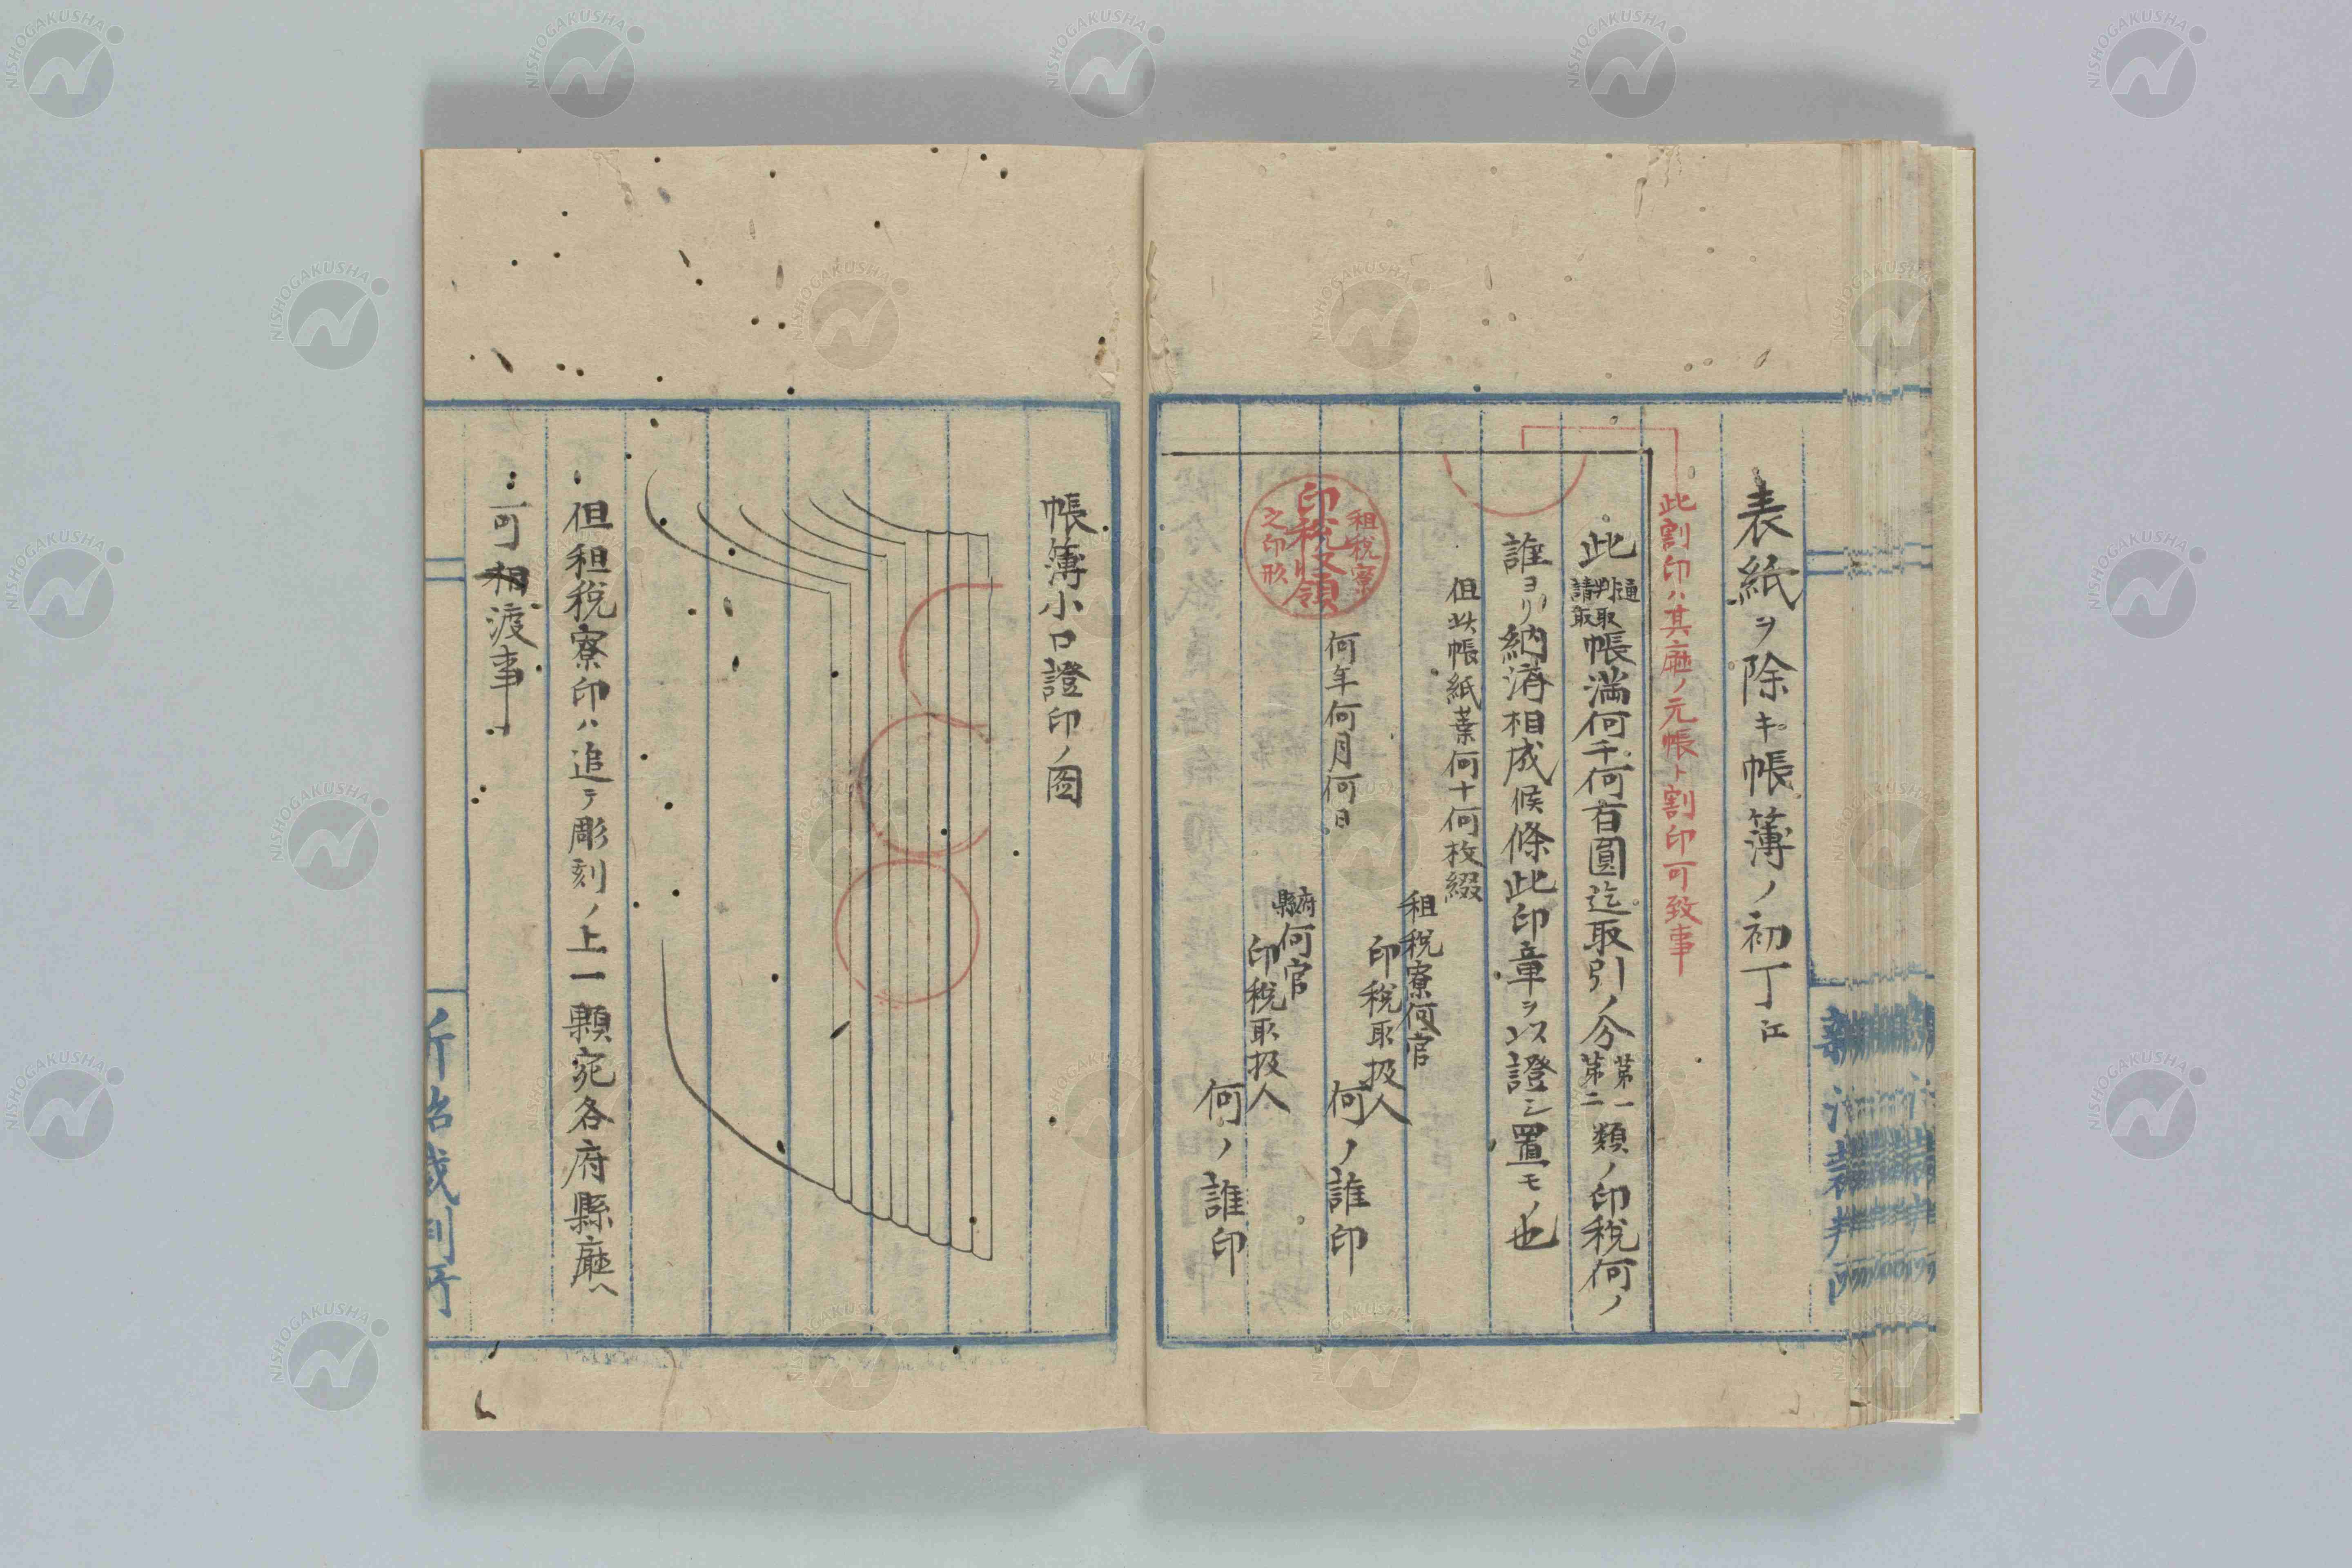 表紙ヲ除キ帳簿ノ初丁江
此割印ハ其廳ノ元帳ト割印可致事
此通判取請取帳満何千何百圓迄取引ノ分第一第二類ノ印税何ノ
誰ヨリ納済相成候條此印章ヲシス證シ置モノ也
但此帳紙葉何十何枚綴
租税寮何官
印税取扱人
何ノ誰印
租税寮
印税収領
之印形
何年何月何日
府縣何官
印税取扱人
何ノ誰印
帳簿小口證印ノ図
但租税寮印ハ追テ彫刻ノ上一顆宛各府縣廳ヘ
可相渡事
新治裁判所
NISHOGAKUSHA